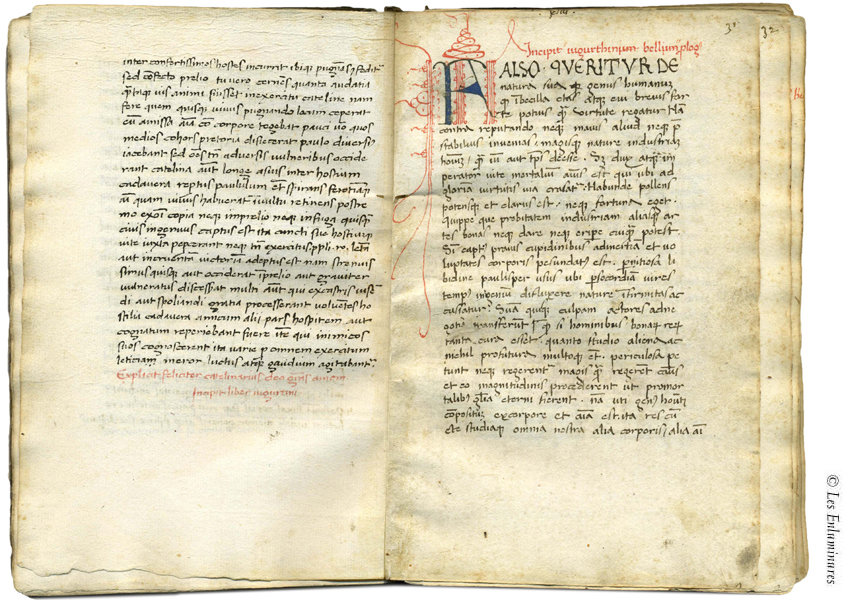 inter confertissimos hostes incurrit ibiq; pugnās cōfoditr
sed confecto prelio tu vero cerneres quanta audatia
q̄ntaq; vis animi fuisset in exercitu cateline nam
fere quem quisque vivus pugnando locum ceperat
eū amissa aīa cō corpore tegebat pauci vō quos
medios cohors pretoria disiecerat paulo diversi'
iacebant sed oēs tn̄ adversis vulneribus occide
rant catelina aut̄ longe a suis inter hostium
cadavera reptus paululum et spirans ferotiāq;
aī quam vivus habuerat ī vultu retinens postre
mo ex oī copia neq; in prelio neq; in fuga quisq̄
civis ingenuus captus est ita cuncti sue hostiūq;
vite iuxta peperant neq; tn̄ exercitus ppli. ro. letā
aut incruentā victoriā adeptus est nam strenuis
simus quisq; aut occiderat ī prelio aut graviter
vulneratus discesserat multi aūt qui ex castris visē
di aut spoliandi gratia processerant volventes ho
stilia cadavera amicum alii pars hospitem aut
cognatum reperiebant fuere itē qui inimicos
suos cognoscerent ita varie p omnem exercitum
leticia meror luctus atq; gaudium agitabant'
Explicit feliciter catelinarius deo gr̄as amen
Incipit liber iugurtini
xiiii
31 32
Incipit iugurthinum bellum: plog'
FALSO QVERITVR DE
natura sua q; genus humanuȝ
q' ībecilla etas atq; evi brevis for
te potius q̄ virtute regatur Nā
contra reputando neq; maius aliud neq; p
stabilius invenias: magisq; nature industriaȝ
homiȝ q̄ vim aut tps̄ deesse. Sȝ dux atq; im
perator vite mortaliuȝ aīus est qui ubi ad
gloriā virtutis via crasat': Habunde pollens
potensq; et clarus est. neq; fortuna eget.
Quippe que probitatem industriam aliasq; ar
tes bonas neq; dare neq; eripe cuiq̄ potest.
Sī capt' pravis cupidinibus ad inertia et vo
luptates corporis pesundat' est. p̄nitiosa li
bidine paulisper usus ubi p socordiam vires
temp' ingeniū difluxere nature īfirmitas ac
cusatur: Sua quiq; culpam actores ad ne
gotia transferūt Q' si hominibus bonaȝ reȝ
tanta cura esset. quanto studio aliena ac
nichil profutura multoq; et. periculosa pe
tunt neq; regerent' magis q̄ regerēt casus
et eo magnitudinis procederent ut p mor
talib' gl'ia eterni fierent. nā uti gen' hoūi
cōpositū ex corpore et aīa est: ita res cū
cte studiaq; omnia nostra alia corporis alia aī
© Les Enluminures